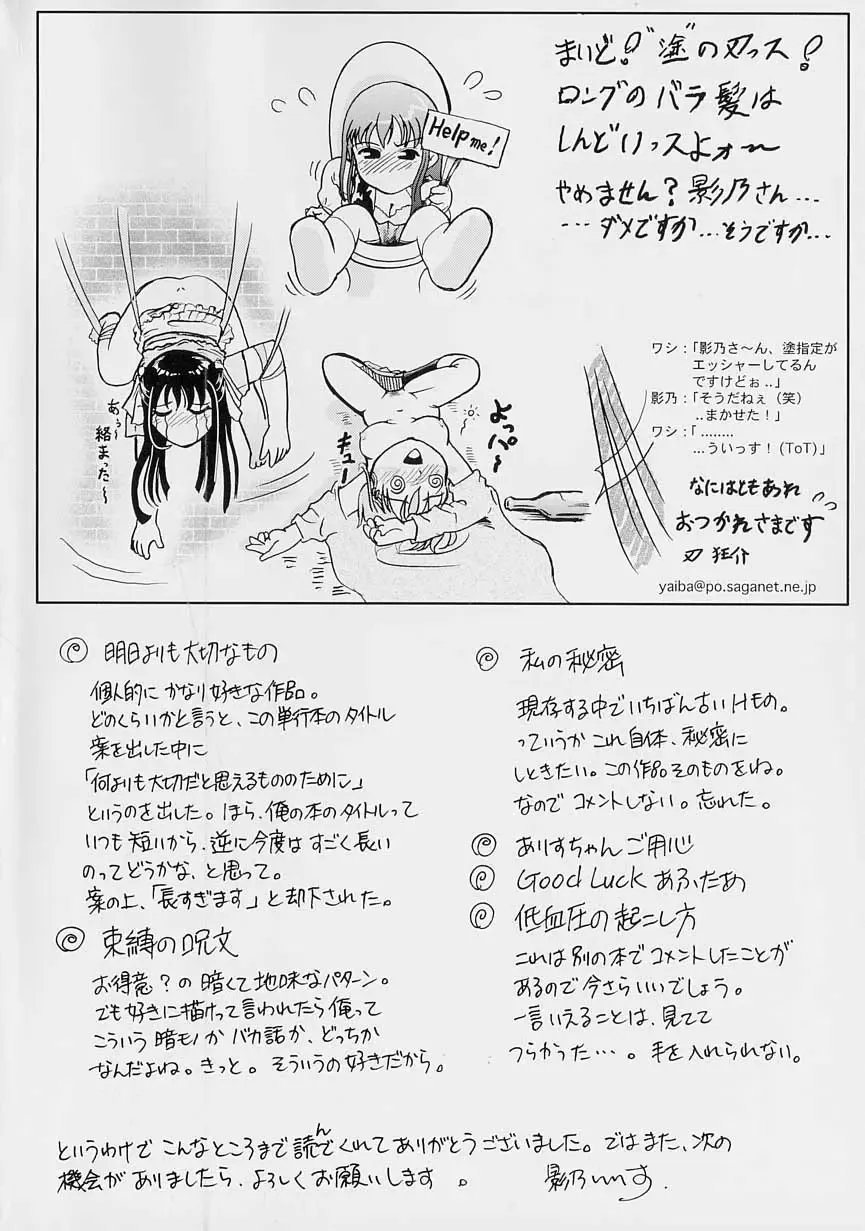 まいど!"塗"の刃っス!
ロングのバラ髪は
しんどいっスよォ〜
やめません?影乃さん...
...ダメですか...そうですか...
Help me!
あぅ〜
絡まった〜
キュー
よっパ〜
ワシ:「影乃さ〜ん、塗指定が
エッシャーしてるん
ですけどぉ..」
影乃:「そうだねぇ(笑)
..まかせた!」
ワシ:「........
...ういっす!(ToT)」
なにはともあれ
おつかれさまです
刃 狂介
yaiba@po.saganet.ne.jp
明日よりも大切なもの
個人的にかなり好きな作品。
どのくらいかと言うと、この単行本のタイトル
案を出した中に
「何よりも大切だと思えるもののために」
というのを出した。ほら、俺の本のタイトルって
いつも短いから、逆に今度はすごく長い
のってどうかな、と思って。
案の上、「長すぎます」と却下された。
束縛の呪文
お得意?の暗くて地味なパターン。
でも好きに描けって言われたら俺って
こういう暗モノかバカ話か、どっちか
なんだよね。きっと。そういうの好きだから。
私の秘密
現存する中でいちばん古いHもの。
っていうかこれ自体、秘密に
しときたい。この作品そのものをね。
なのでコメントしない。忘れた。
ありすちゃんご用心
Good Luck あふたあ
低血圧の起こし方
これは別の本でコメントしたことが
あるので今さらいいでしょう。
一言いえることは、見てて
つらかった…。手を入れられない。
というわけでこんなところまで読んでくれてありがとうございました。ではまた、次の
機会がありましたら、よろしくお願いします。
影乃いりす.